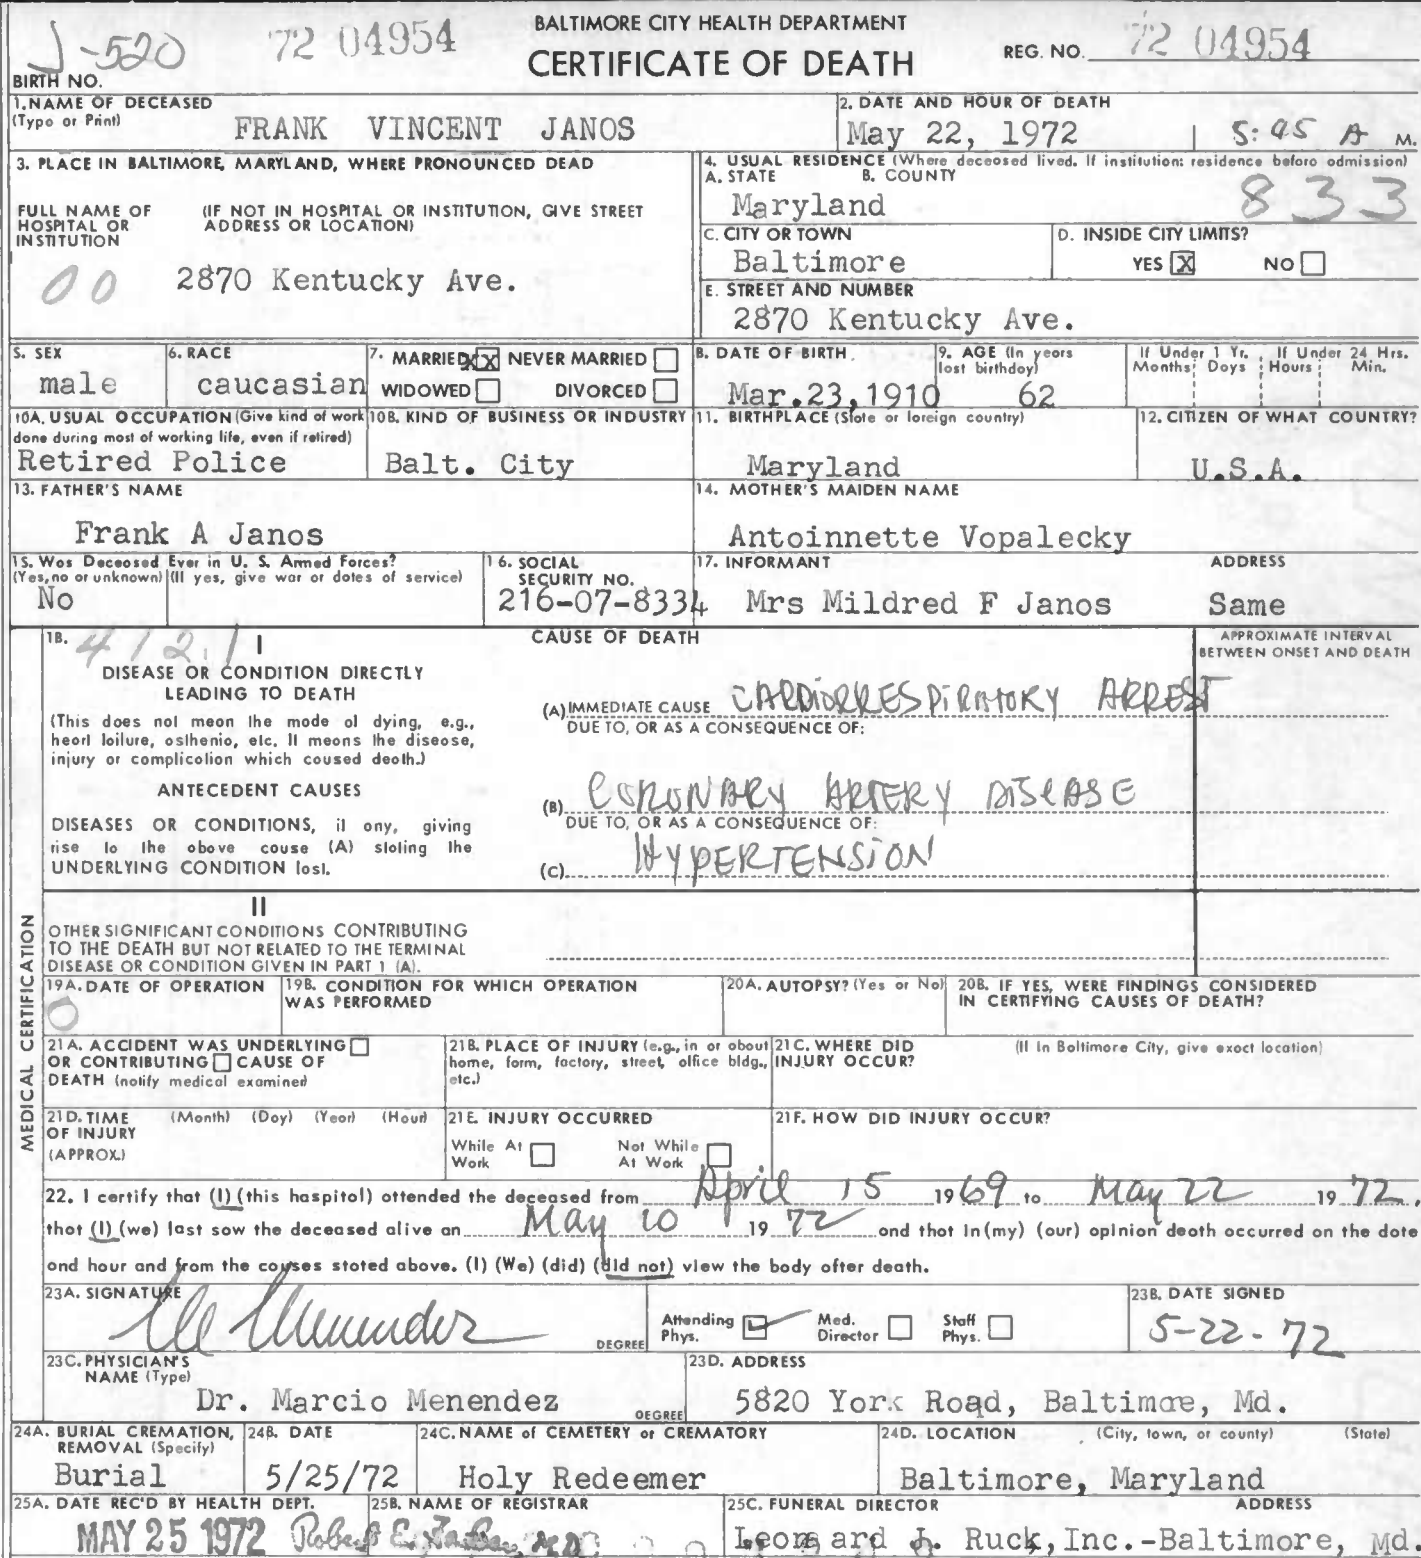 J-520 72 04954 BALTIMORE CITY HEALTH DEPARTMENT
CERTIFICATE OF DEATH REG. NO. 72 04954
BIRTH NO.
1. NAME OF DECEASED
(Type or Print) FRANK VINCENT JANOS
2. DATE AND HOUR OF DEATH
May 22, 1972 5:45 A M.
3. PLACE IN BALTIMORE, MARYLAND, WHERE PRONOUNCED DEAD
FULL NAME OF HOSPITAL OR INSTITUTION
(IF NOT IN HOSPITAL OR INSTITUTION, GIVE STREET ADDRESS OR LOCATION)
00 2870 Kentucky Ave.
4. USUAL RESIDENCE (Where deceased lived. If institution: residence before admission)
A. STATE B. COUNTY
Maryland 833
C. CITY OR TOWN
Baltimore
D. INSIDE CITY LIMITS?
YES X NO
E. STREET AND NUMBER
2870 Kentucky Ave.
5. SEX
male
6. RACE
caucasian
7. MARRIED XX NEVER MARRIED
WIDOWED DIVORCED
8. DATE OF BIRTH
Mar.23,1910
9. AGE (In years last birthday)
62
If Under 1 Yr. If Under 24 Hrs.
Months Days Hours Min.
10A. USUAL OCCUPATION (Give kind of work done during most of working life, even if retired)
Retired Police
10B. KIND OF BUSINESS OR INDUSTRY
Balt. City
11. BIRTHPLACE (State or foreign country)
Maryland
12. CITIZEN OF WHAT COUNTRY?
U.S.A.
13. FATHER'S NAME
Frank A Janos
14. MOTHER'S MAIDEN NAME
Antoinnette Vopalecky
15. Was Deceased Ever in U. S. Armed Forces?
(Yes, no or unknown) (If yes, give war or dates of service)
No
16. SOCIAL SECURITY NO.
216-07-8334
17. INFORMANT ADDRESS
Mrs Mildred F Janos Same
18. 412.1 I
CAUSE OF DEATH
APPROXIMATE INTERVAL
BETWEEN ONSET AND DEATH
DISEASE OR CONDITION DIRECTLY
LEADING TO DEATH
(This does not mean the mode of dying, e.g.,
heart failure, asthenia, etc. It means the disease,
injury or complication which caused death.)
(A) IMMEDIATE CAUSE CARDIORRESPIRATORY ARREST
DUE TO, OR AS A CONSEQUENCE OF:
ANTECEDENT CAUSES
DISEASES OR CONDITIONS, if any, giving
rise to the above cause (A) stating the
UNDERLYING CONDITION last.
(B) CORONARY ARTERY DISEASE
DUE TO, OR AS A CONSEQUENCE OF:
(C) HYPERTENSION
II
OTHER SIGNIFICANT CONDITIONS CONTRIBUTING
TO THE DEATH BUT NOT RELATED TO THE TERMINAL
DISEASE OR CONDITION GIVEN IN PART 1 (A).
MEDICAL CERTIFICATION
19A. DATE OF OPERATION
0
19B. CONDITION FOR WHICH OPERATION
WAS PERFORMED
20A. AUTOPSY? (Yes or No)
20B. IF YES, WERE FINDINGS CONSIDERED
IN CERTIFYING CAUSES OF DEATH?
21A. ACCIDENT WAS UNDERLYING
OR CONTRIBUTING CAUSE OF
DEATH (notify medical examiner)
21B. PLACE OF INJURY (e.g., in or about
home, farm, factory, street, office bldg.,
etc.)
21C. WHERE DID
INJURY OCCUR?
(If In Baltimore City, give exact location)
21D. TIME (Month) (Day) (Year) (Hour)
OF INJURY
(APPROX.)
21E. INJURY OCCURRED
While At Work Not While At Work
21F. HOW DID INJURY OCCUR?
22. I certify that (I) (this hospital) attended the deceased from April 15 1969 to May 22 1972,
that (I) (we) last saw the deceased alive on May 10 1972 and that in (my) (our) opinion death occurred on the date
and hour and from the causes stated above. (I) (We) (did) (did not) view the body after death.
23A. SIGNATURE
M Menendez DEGREE
Attending Phys. Med. Director Staff Phys.
23B. DATE SIGNED
5-22-72
23C. PHYSICIAN'S
NAME (Type)
Dr. Marcio Menendez DEGREE
23D. ADDRESS
5820 York Road, Baltimore, Md.
24A. BURIAL CREMATION,
REMOVAL (Specify)
Burial
24B. DATE
5/25/72
24C. NAME of CEMETERY or CREMATORY
Holy Redeemer
24D. LOCATION (City, town, or county) (State)
Baltimore, Maryland
25A. DATE REC'D BY HEALTH DEPT.
MAY 25 1972
25B. NAME OF REGISTRAR
Robert E. Farber, M.D.
25C. FUNERAL DIRECTOR ADDRESS
Leonard J. Ruck, Inc.-Baltimore, Md.